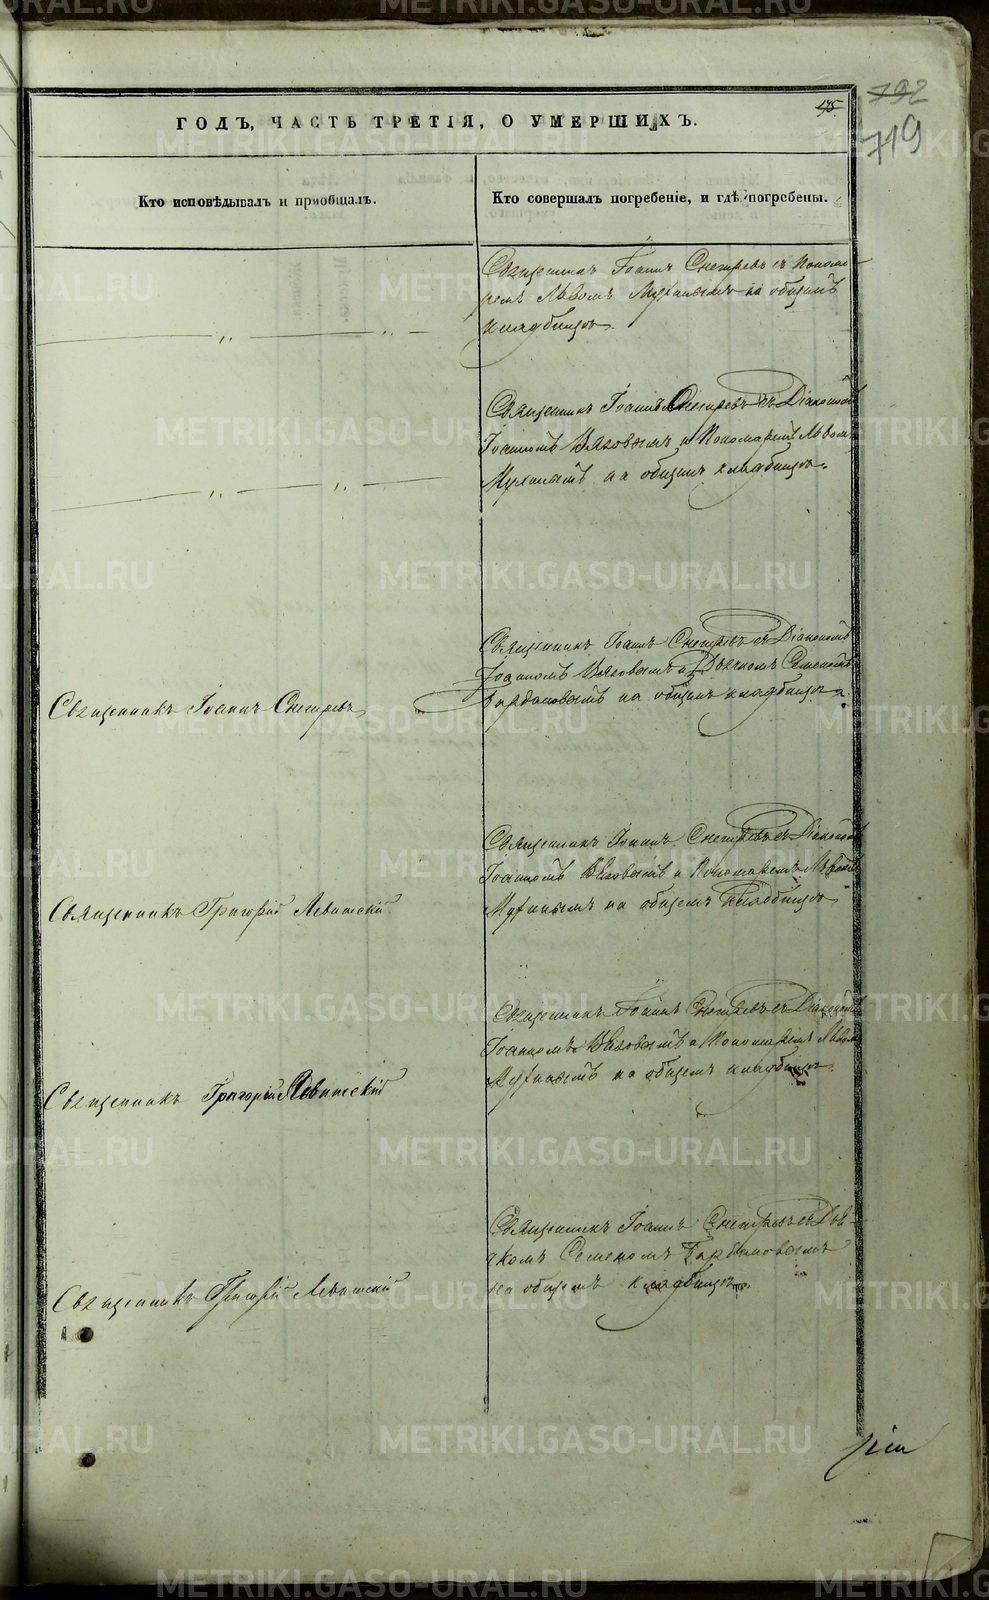 175.
792
719
ГОДЪ, ЧАСТЬ ТРЕТІЯ, О УМЕРШИХЪ.
Кто исповѣдывалъ и пріобщалъ.
Кто совершалъ погребеніе, и гдѣ погребены.
Священникъ Іоаннъ Снегиревъ съ Понома-
ремъ Львомъ Мухинымъ на общемъ
кладбищѣ.
Священникъ Іоаннъ Снегиревъ съ Діакономъ
Іоанномъ Вяховымъ и Пономаремъ Львомъ
Мухинымъ на общемъ кладбищѣ.
Священникъ Іоаннъ Снегиревъ
Священникъ Іоаннъ Снегиревъ съ Діакономъ
Іоанномъ Вяховымъ и Дьячкомъ Семеномъ
на общемъ кладбищѣ
Священникъ Григорій Левитскій
Священникъ Іоаннъ Снегиревъ съ Діакономъ
Іоанномъ Вяховымъ и Пономаремъ Львомъ
Мухинымъ на общемъ кладбищѣ
Священникъ Григорій Левитскій
Священникъ Іоаннъ Снегиревъ съ Діакономъ
Іоанномъ Вяховымъ и Пономаремъ Львомъ
Мухинымъ на общемъ кладбищѣ.
Священникъ Григорій Левитскій
Священникъ Іоаннъ Снегиревъ съ Дья-
чкомъ Семеномъ
на общемъ кладбищѣ.
METRIKI.GASO-URAL.RU